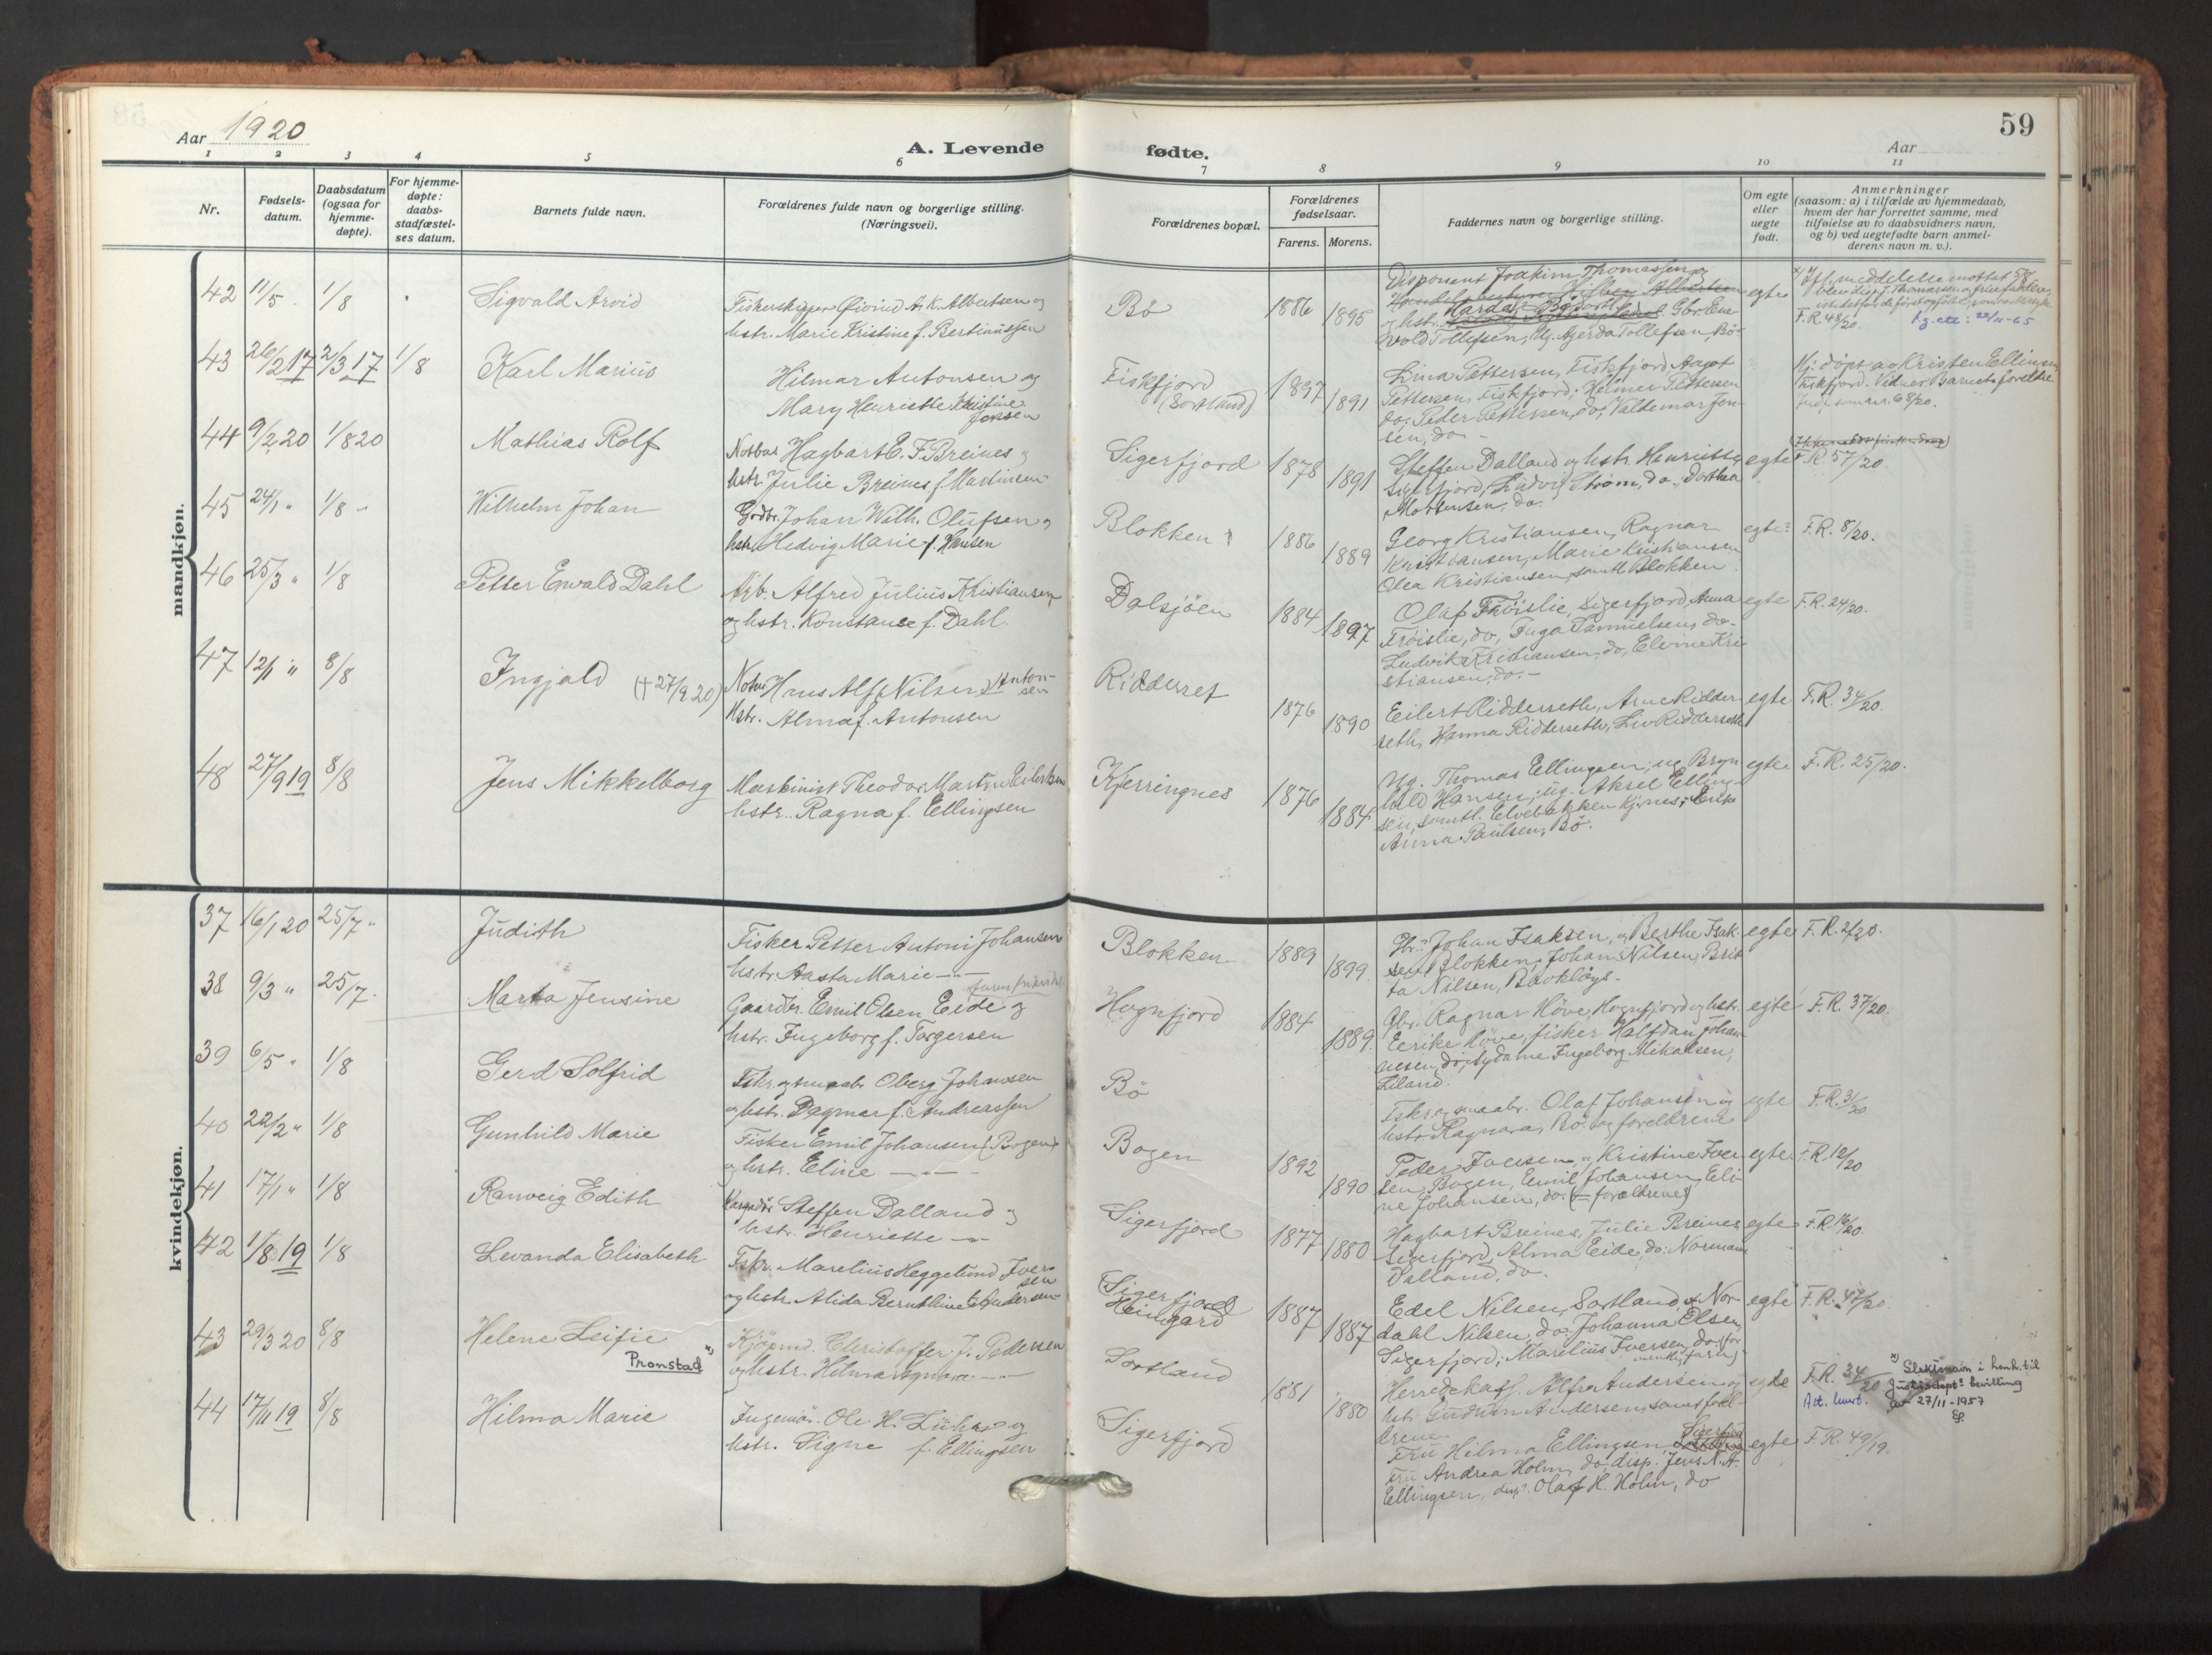 59
Aar 1920
A. Levende fødte.
Aar
1 2 3 4 5 6 7 8 9 10 11
Nr.
Fødsels-
datum.
Daabsdatum
(ogsaa for
hjemme-
døpte).
For hjemme-
døpte:
daabs-
stadfæstel-
ses datum.
Barnets fulde navn.
Forældrenes fulde navn og borgerlige stilling.
(Næringsvei).
Forældrenes bopæl.
Forældrenes
fødselsaar.
Farens. Morens.
Faddernes navn og borgerlige stilling.
Om egte
eller
uegte
født.
Anmerkninger
(saasom: a) i tilfælde av hjemmedaab,
hvem der har forrettet samme, med
tilføielse av to daabsvidners navn,
og b) ved uegtefødte barn anmel-
derens navn m. v.).
mandkjøn.
42 11/5 1/8 Sigvald Arvid
Fiskerskipper Øivind A. K. Albertsen og
hstr. Marie Kristine f. Bertinussen
Bø 1886 1895
Disponent Joakim Thomassen og
Gbr. Ene-
vold Tollefsen, Ug. Agerda Tollefsen, Bö-
egte
F.R. 48/20.
43 26/2 17 2/3 17 1/8 Karl Marius
Hilmar Antonsen og
Mary Henriette Kristine
Jensen
Fiskfjord
(Sortland)
1897 1891
Lina Pettersen, Fiskfjord, Aagot
Pettersen, Fiskfjord; Helmer Pettersen
do; Peder Pettersen, do; Valdemar Jen-
sen, do -
Hj: döpt av Kristen Ellingsen
Fiskfjord. Vidner Barnets foreldre
44 9/2 20 1/8 20 Mathias Rolf
Notbas Hagbart E. F. Breines og
hstr. Julie Breines f. Martinsen
Sigerfjord 1878 1891
Steffen Dalland og hstr. Henriette
Sigerfjord, Ludvig Strøm, do, Dorthea
Mortensen, do.
egte
F.R. 57/20.
45 24/1 " 1/8 " Wilhelm Johan
Grdbr. Johan Wilh. Olufsen og
hstr. Hedvig Marie f. Hansen
Blokken 1886 1889
Georg Kristiansen, Ragnar
Kristiansen, Marie Kristiansen
Olea Kristiansen, samtl. Blokken
egte
F.R. 8/20.
46 25/3 " 1/8 Petter Ewald Dahl
Arb. Alfred Julius Kristiansen
og hstr. Konstanse f. Dahl
Dalsjöen 1884 1897
Olaf Fröislie, Sigerfjord, Anna
Fröislie, do, Inga Danielsen, do-
Ludvik Kristiansen, do, Elvine Kri-
stiansen, do. -
egte
F.R. 24/20.
47 12/1 " 8/8 Ingjald (+ 27/9 20)
Hans Alf Nilsen Anton-
sen
Hstr. Alma f. Antonsen
Ridderset 1876 1890
Eilert Ridderseth, Arne Ridder-
seth, Hanna Ridderseth, Liv Ridderseth
egte
F.R. 34/20.
48 27/9 19 8/8 Jens Mikkelborg
Maskinist Theodor Martin Eilertsen
hstr. Ragna f. Ellingsen
Kjerringnes 1876 1884
Ug. Thomas Ellingsen; ug. Bryn-
hild Hansen; ug. Aksel Elling-
sen, samtl. Elvebakken Kj.nes;
Anna Paulsen, Bö.
egte
F.R. 25/20.
kvindekjøn.
37 16/1 20 25/7 " Judith
Fisker Petter Antoni Johansen
hstr. Aasta Marie -"-
Blokken 1889 1899
Gbr. Johan Isaksen, og Berthe Isak-
sen Blokken; Johan Nilsen, Brit-
ta Nilsen,
egte
F.R. 2/20.
38 9/3 " 25/7 Marta Jensine
Gaardbr. Emil Olsen Eide og
hstr. Ingeborg f. Torgersen
Hognfjord 1884 1889
Gbr. Ragnar Höve, Hognfjord og hstr.
Eerike Höve, fisker Halfdan Johan-
nesen, do; sydame Ingeborg Mikalsen,
Liland.
egte
F.R. 37/20.
39 6/5 " 1/8 Gerd Solfrid
Fskr. og smaabr. Oberg Johansen
og hstr. Dagmar f. Andreassen
Bö
Fskr. og smaabr. Olaf Johansen og
hstr. Ragnara, Bö. og foreldrene
egte
F.R. 31/20
40 22/2 " 1/8 Gunhild Marie
Fisker Emil Johansen (Bogen)
og hstr. Eline -"-
Bogen 1892 1890
Peder Iversen, Kristine Iver-
sen, Bogen, Emil Johansen, Eli-
ne Johansen, do. (= forældrene)
egte
F.R. 12/20
41 17/1 " 1/8 Ranveig Edith
Steffen Dalland og
hstr. Henriette -"-
Sigerfjord 1877 1880
Hagbart Breines, Julie Breines
Sigerfjord, Alma Eide, do. Normann
Dalland, do.
egte
F.R. 16/20.
42 1/8 19 1/8 Levanda Elisabeth
Fskr. Marelius Heggelund Iver-
sen
og hstr. Alida Berntline f. Andersen
Sigerfjord
Heimgard
1887 1887
Edel Nilsen, Sortland, Nor-
dahl Nilsen, do. Johanna Olsen,
Sigerfjord; Marelius Iversen, do. (for
egte
F.R. 47/20.
43 29/3 20 8/8 Helene Leifie
Pronstad *)
Kjöpmd. Christoffer J. Pedersen
og hstr. Hilma -"-
Sortland 1881 1880
Herredskass. Alfr. Andersen og
hstr. Gudrun Andersen, samt foræl-
drene
egte
F.R. 34/20
*) Slektsnavn i henh. til
Justisdept.s bevilling
av 27/11-1957
44 17/11 19 8/8 Hilma Marie
Ingeniör. Ole H. Lühr og
hstr. Signe f. Ellingsen
Sigerfjord
Fru Hilma Ellingsen Sigerfjord
Fru Andrea Holm, do, disp. Jens N. A.
Ellingsen, disp. Olaf H. Holm, do
egte
F.R. 49/19.